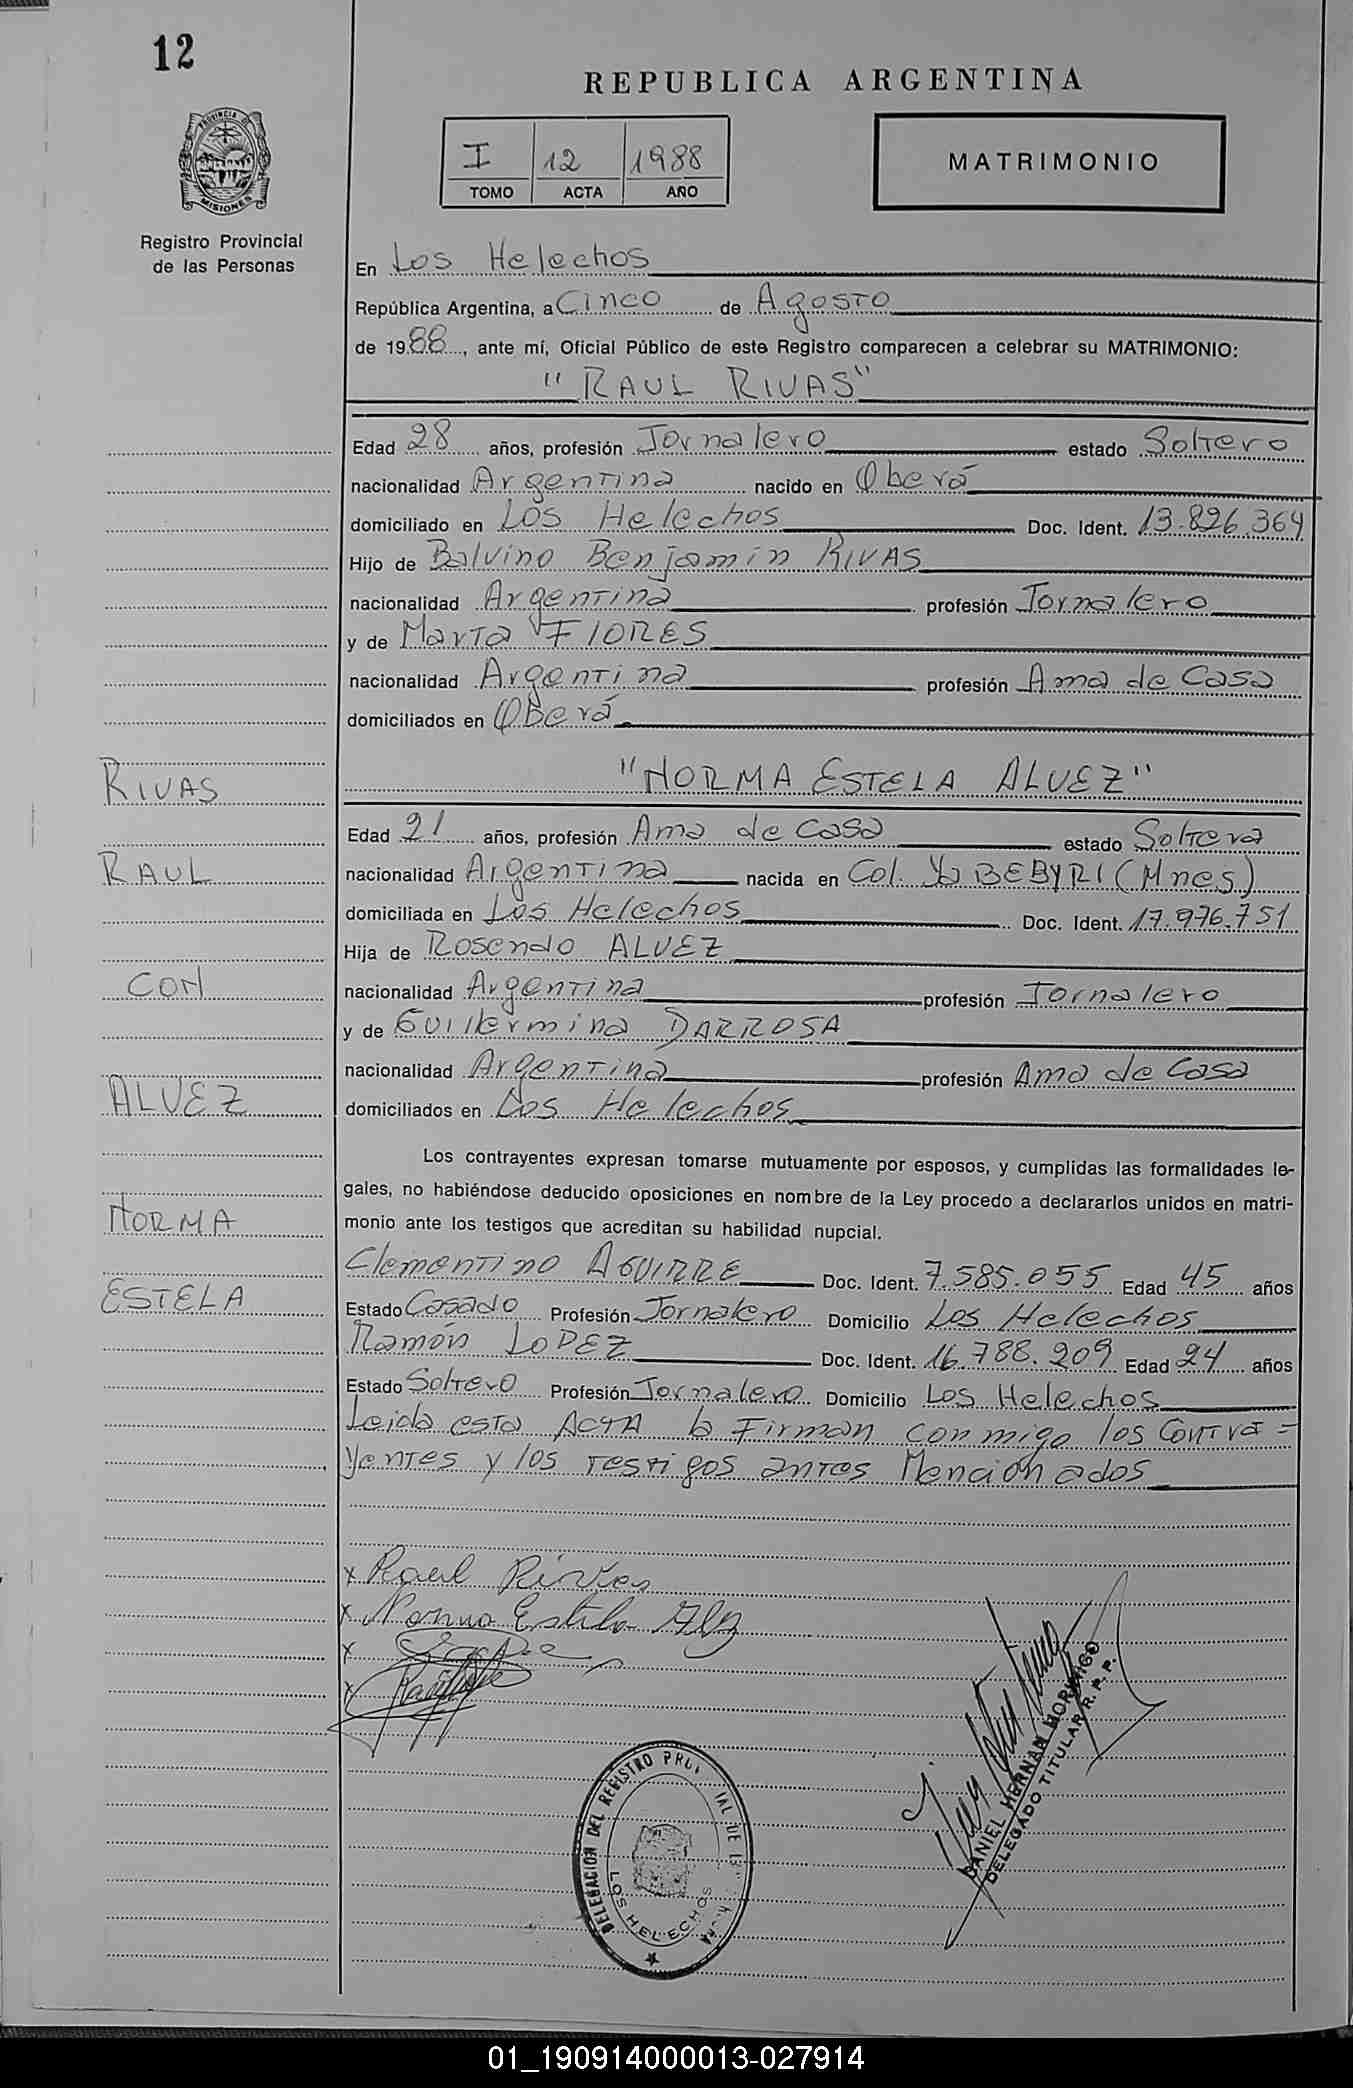 12
REPUBLICA ARGENTINA
I 12 1988
TOMO ACTA AÑO
MATRIMONIO
PROVINCIA DE
MISIONES
Registro Provincial
de las Personas
En Los Helechos
República Argentina, a Cinco de Agosto
de 1988, ante mí, Oficial Público de este Registro comparecen a celebrar su MATRIMONIO:
"RAUL RIVAS"
Edad 28 años, profesión Jornalero estado Soltero
nacionalidad Argentina nacido en Oberá
domiciliado en Los Helechos Doc. Ident. 13.826.364
Hijo de Balvino Benjamin RIVAS
nacionalidad Argentina profesión Jornalero
y de Marta FlORES
nacionalidad Argentina profesión Ama de Casa
domiciliados en Oberá
"NORMA ESTELA ALVEZ"
Edad 21 años, profesión Ama de Casa estado Soltera
nacionalidad Argentina nacida en Col. YaBEBYRI (Mnes)
domiciliada en Los Helechos Doc. Ident. 17.976.751
Hija de Rosendo ALVEZ
nacionalidad Argentina profesión Jornalero
y de Guillermina DARROSA
nacionalidad Argentina profesión Ama de Casa
domiciliados en Los Helechos
RIVAS
RAUL
CON
ALVEZ
NORMA
ESTELA
Los contrayentes expresan tomarse mutuamente por esposos, y cumplidas las formalidades le-
gales, no habiéndose deducido oposiciones en nombre de la Ley procedo a declararlos unidos en matri-
monio ante los testigos que acreditan su habilidad nupcial.
Clementino AGUIRRE Doc. Ident. 7.585.055 Edad 45 años
Estado Casado Profesión Jornalero Domicilio Los Helechos
Ramón LOPEZ Doc. Ident. 16.788.209 Edad 24 años
Estado Soltero Profesión Jornalero Domicilio Los Helechos
Leida esta ACTA la Firman conmigo los Contra=
yentes y los testigos antes Mencionados
x Raul Rivas
x Norma Estela Alvez
x
x
DANIEL HERNAN HORMIGO
DELEGADO TITULAR R. P. P.
DELEGACION DEL REGISTRO
LOS HELECHOS
01_190914000013-027914